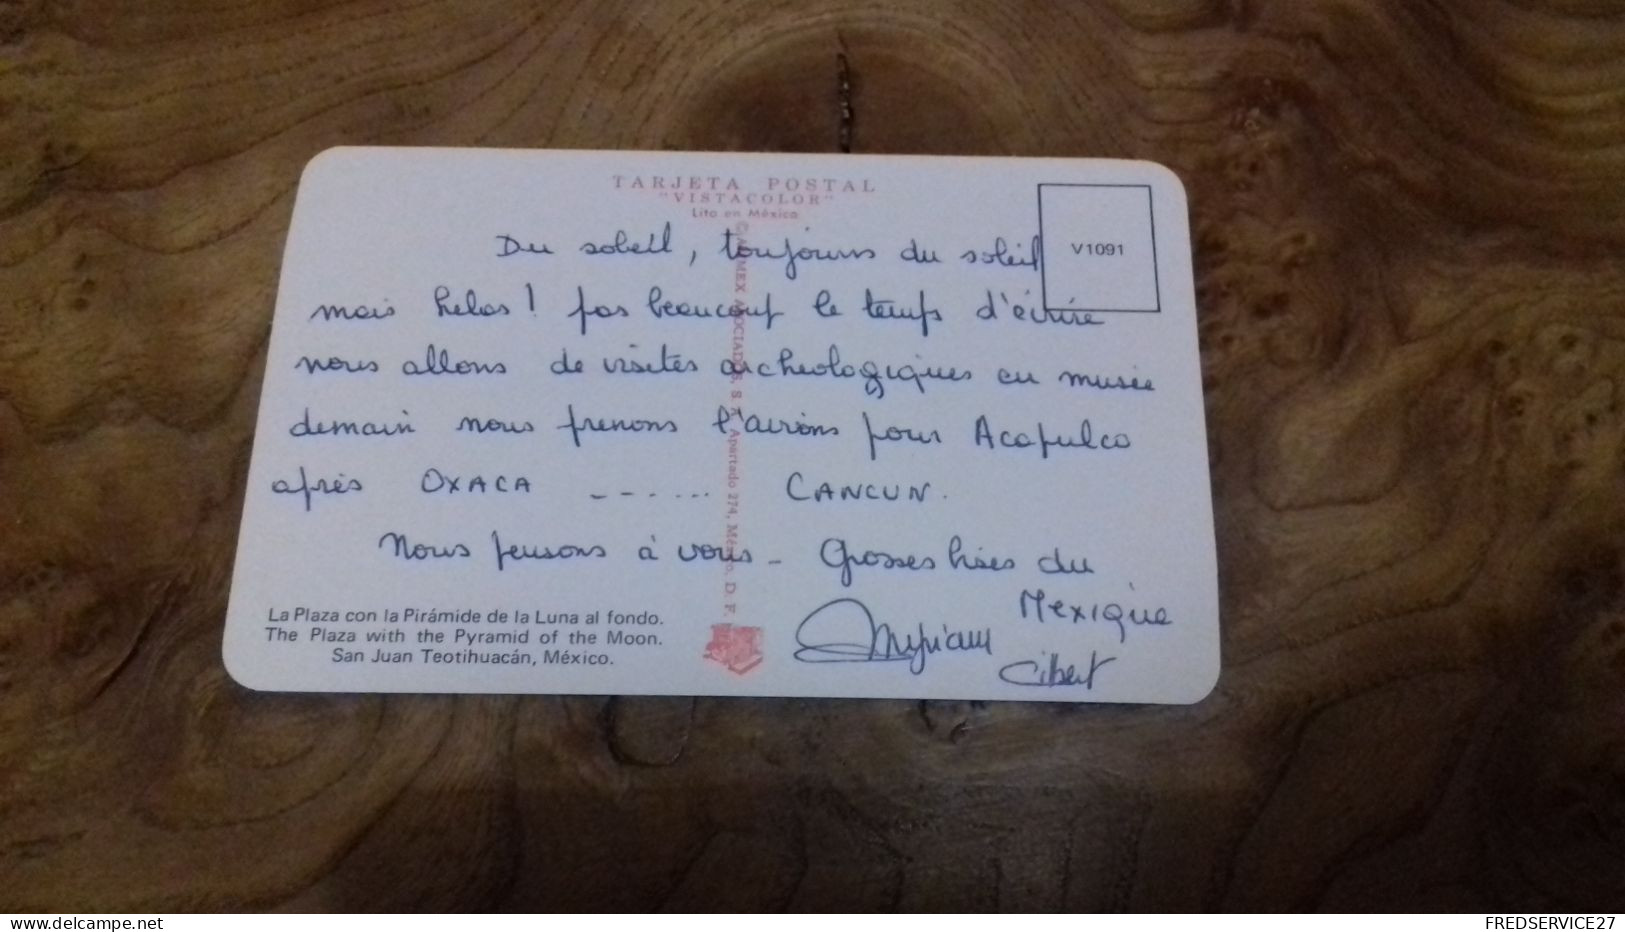 TARJETA POSTAL
"VISTACOLOR"
Lito en México
V1091
Du soleil, toujours du soleil
mais helas! pas beaucoup le temps d'écrire
nous allons de visites archeologiques en musée
demain nous prenons l'avions pour Acapulco
après OXACA ------ CANCUN.
Nous pensons à vous - Grosses bises du
Mexique
Myriam
Cibert
Apartado 274, México, D. F.
La Plaza con la Pirámide de la Luna al fondo.
The Plaza with the Pyramid of the Moon.
San Juan Teotihuacán, México.
www.delcampe.net
FREDSERVICE27